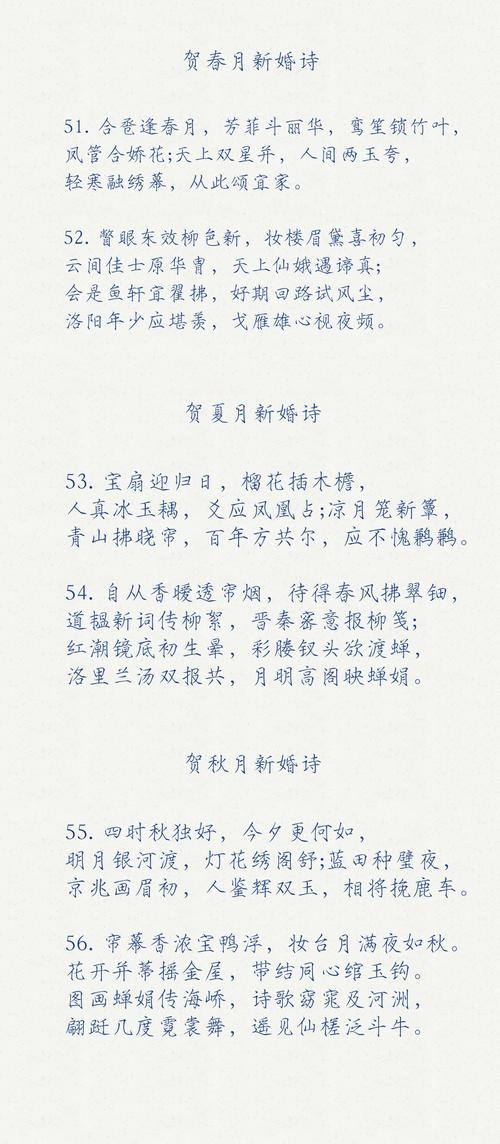 贺春月新婚诗
51. 合卺逢春月，芳菲斗丽华，鸾笙锁竹叶，
凤管合娇花;天上双星并，人间两玉夸，
轻寒融绣幕，从此颂宜家。
52. 瞥眼东效柳色新，妆楼眉黛喜初匀，
云间佳士原华胄，天上仙娥遇谛真;
会是鱼轩宜翟拂，好期回路试风尘，
洛阳年少应堪羡，戈雁雄心视夜频。
贺夏月新婚诗
53. 宝扇迎归日，榴花插木檐，
人真冰玉耦，爻应凤凰占;凉月笼新簟，
青山拂晓帘，百年方共尔，应不愧鹣鹣。
54. 自从香暧透帘烟，待得春风拂翠钿，
道韫新词传柳絮，晋秦密意报柳笺;
红潮镜底初生晕，彩媵钗头欲渡蝉，
洛里兰汤双报共，月明高阁映蝉娟。
贺秋月新婚诗
55. 四时秋独好，今夕更何如，
明月银河渡，灯花绣阁舒;蓝田种璧夜，
京兆画眉初，人鉴辉双玉，相将挽鹿车。
56. 帘幕香浓宝鸭浮，妆台月满夜如秋。
花开并蒂摇金屋，带结同心绾玉钩。
图画蝉娟传海峤，诗歌窈窕及河洲，
翩跹几度霓裳舞，遥见仙槎泛斗牛。